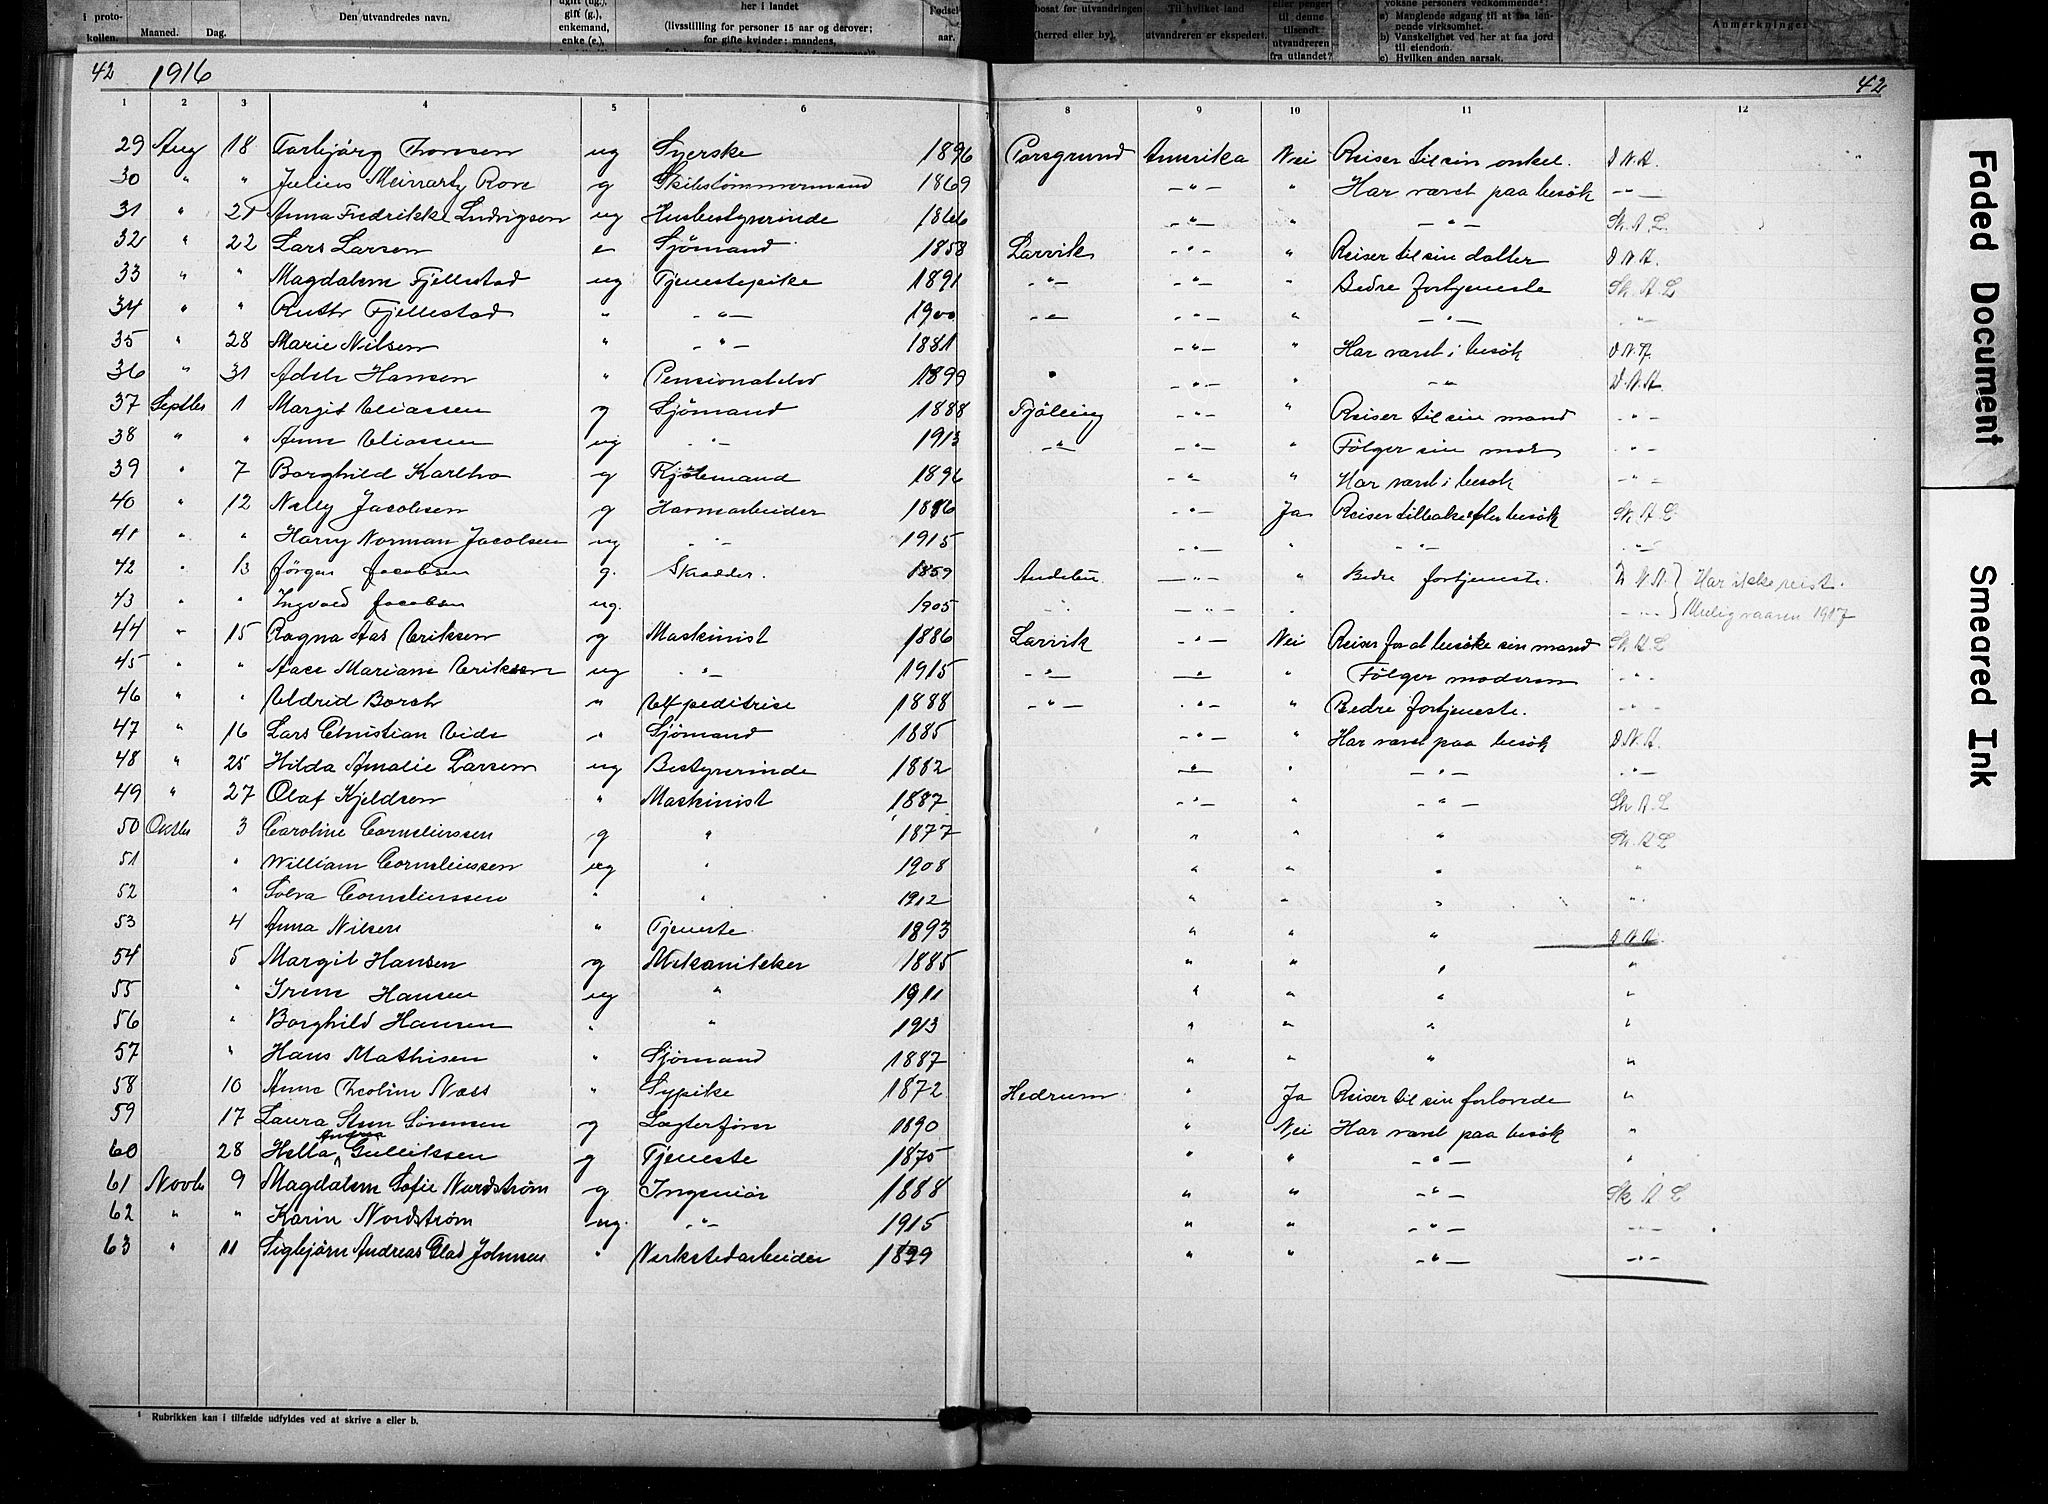 i proto-kollen. Maaned. Dag. Den utvandredes navn. gift (g.), enkemand, enke (e.), her i landet (livsstilling for personer 15 aar og derover; for gifte kvinder: mandens, Fødsel aar. bosat før utvandringen (herred eller by). Til hvilket land utvandreren er ekspedert. eller penger til denne tilsendt utvandreren fra utlandet? voksne personers vedkommende: a) Manglende adgang til at faa lønnende virksomhet. b) Vanskelighet ved her at faa jord til eiendom. c) Hvilken anden aarsak. Anmerkninger
42 1916 42
1 2 3 4 5 6 7 8 9 10 11 12
29 Aug 18 Torbjörg Thomsen ug Syerske 1896 Porsgrund Amerika Nei Reiser til sin onkel. D N A.
30 " " Julius g Skibstömmermand 1869 - " - " Har været paa besök - " -
31 " 21 Anna Fredrikke Ludvigsen ug Husbestyrerinde 1866 - " - " - " - Sk. A. L.
32 " 22 Lars Larsen e Sjömand 1853 Larvik - " - " Reiser til sin datter D N A.
33 " " Magdalene Fjellestad ug Tjenestepike 1891 - " - - " - " Bedre fortjeneste Sk. A. L
34 " " Ruth Fjellestad " - " - 1900 - " - - " - " - " - - " -
35 " 28 Marie Nilsen " - " - 1881 - " - " Har været i besök D. N. A.
36 " 31 Adele Hansen " 1899 " - " - " - " - D. N. A.
37 Septbr 1 Margit Eliassen g Sjömand 1888 Tjölling - " - " Reiser til sin mand - " -
38 " " Anne Eliassen ug - " - 1913 - " - - " - " Følger sin mor - " -
39 " 7 Borghild Karlho g 1896 - " - " Har været i besök - " -
40 " 12 Nelly Jacobsen g Havnarbeider 1886 - " - Ja Reiser tilbake efter besök Sk. A. L.
41 " " Harry Norman Jacobsen ug - " - 1915 - " - " - " - - " -
42 " 13 Jörgen Jacobsen g. Skrædder. 1859 Andebu - " - " Bedre fortjeneste. D. N. A. } Har ikke reist.
43 " " Ingvald Jacobsen ug. 1905 - " - - " - " - " - } Mulig vaaren 1917
44 " 15 Ragna Aas Eriksen g Maskinist 1886 Larvik - " - Nei Reiser for at besöke sin mand Sk. A. L
45 " " Aase Mariane Eriksen ug - " - 1915 - " - - " - " Følger moderen - " -
46 " " Eldrid Borch " Expeditrise 1888 - " - - " - " Bedre fortjeneste. - " -
47 " 16 Lars Christian Eide " Sjömand 1885 - " - " Har været paa besök D. N. A.
48 " 25 Hilda Amalie Larsen ug Bestyrerinde 1882 - " - " - " - - " -
49 " 27 Olaf Kjeldsen " Maskinist 1887 - " - " - " - Sk A. L
50 Oktbr 3 Caroline Corneliussen g " 1877 " " " Sk. A L
51 " William Corneliussen ug " 1908 " " " "
52 " Solva Corneliussen " " 1912 " " " "
53 4 Anna Nilsen " Tjeneste 1893 " " " D. N. A.
54 5 Margit Hansen g Mekanikker 1885 " " " "
55 " Irene Hansen ug " 1911 " " " "
56 " Borghild Hansen " " 1913 " " " "
57 " Hans Mathisen " Sjömand 1887 " " " "
58 10 Anne Theoline Næss " Sypike 1872 Hedrum " Ja Reiser til sin forlovede "
59 17 Laura Sörensen g 1890 " Nei Har været paa besök "
60 28 Hella Andrea Gulliksen g Tjeneste 1875 " " - " - "
61 Novbr 9 Magdalene Sofie Nordström g Ingeniör 1888 " " - " - Sk A L
62 " " Karin Nordström ug. - " - 1915 " " - " - - " -
63 " 11 Sigbjörn Andreas Glad Johnsen " Verkstedarbeider 1899 " " - " - - " -
1 Rubrikken kan i tilfælde udfyldes ved at skrive a eller b.
Faded Document
Smeared Ink